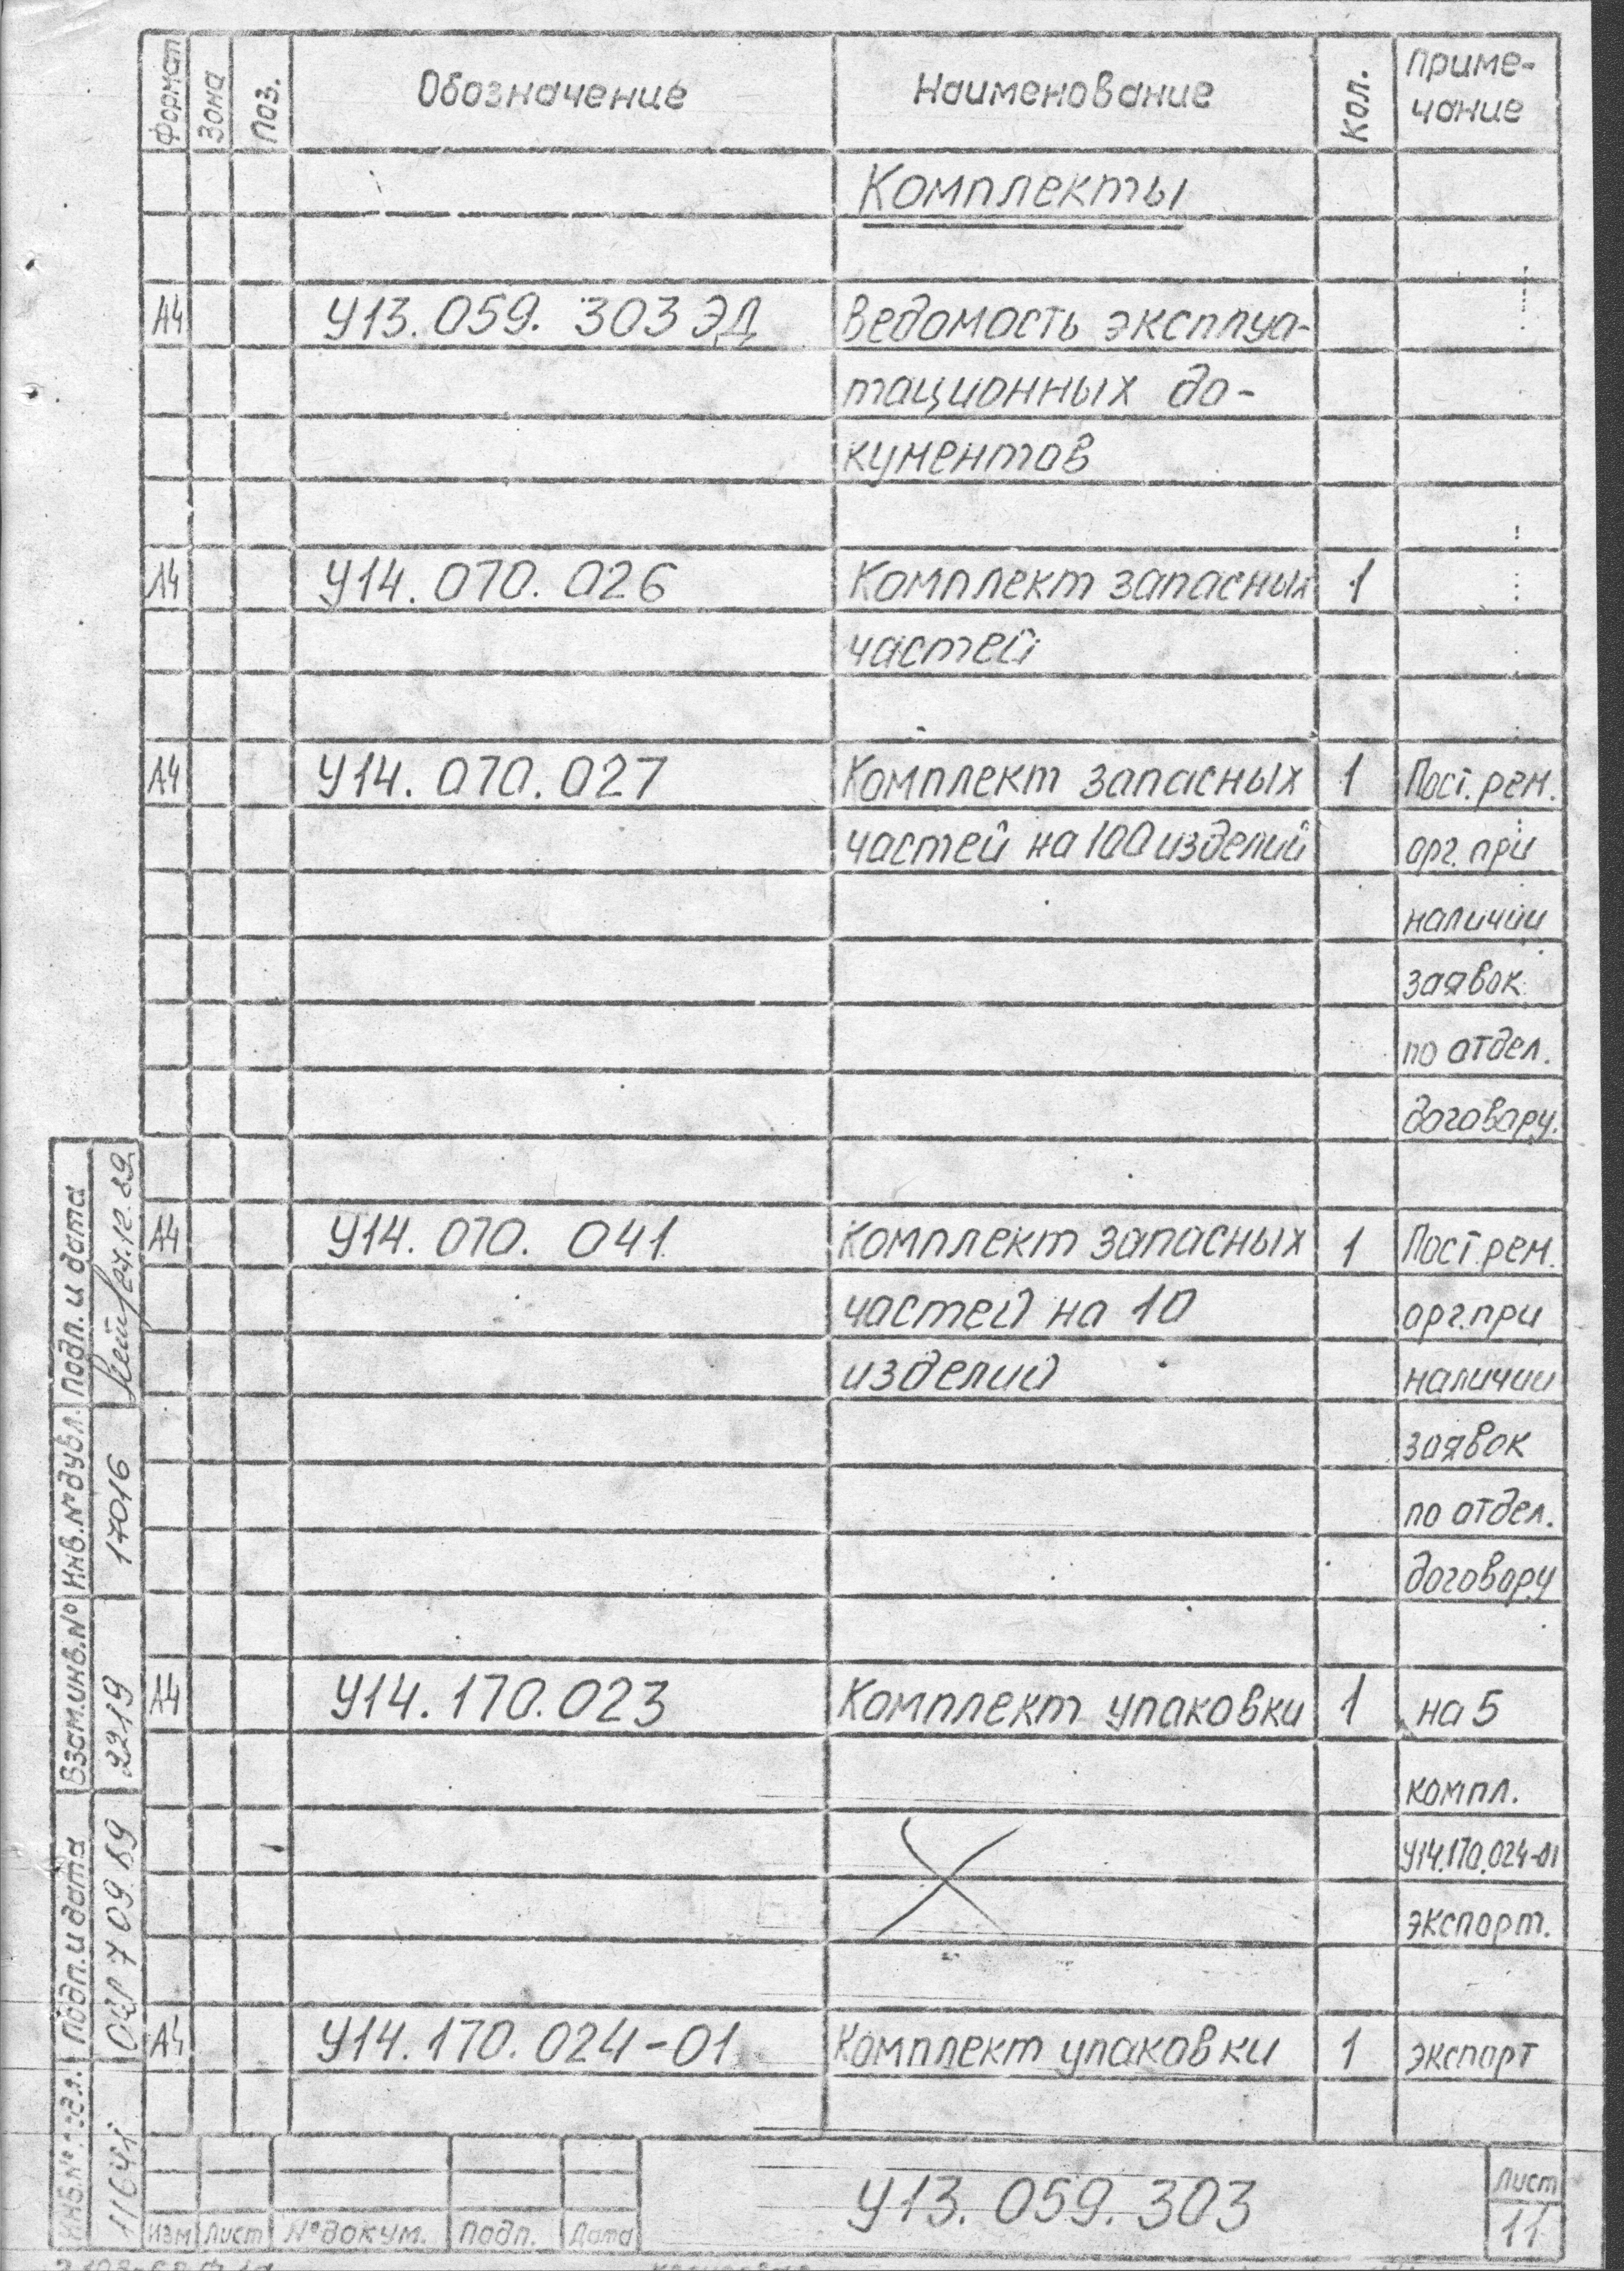 Формат Зона Поз. Обозначение Наименование Кол. Приме-
чание
Комплекты
А4 У13.059.303 ЭД Ведомость эксплуа-
тационных до-
кументов
А4 У14.070.026 Комплект запасных 1
частей
А4 У14.070.027 Комплект запасных 1 Пост. рем.
частей на 100 изделий орг. при
наличии
заявок
по отдел.
договору.
А4 У14.070.041 Комплект запасных 1 Пост. рем.
частей на 10 орг. при
изделий наличии
заявок
по отдел.
договору
А4 У14.170.023 Комплект упаковки 1 на 5
компл.
У14.170.024-01
экспорт.
А4 У14.170.024-01 Комплект упаковки 1 экспорт
Изм Лист № докум. Подп. Дата
У13.059.303
Лист
11
Подп. и дата
Инв. № дубл. 17016
Взам. инв. № 2219
Подп. и дата 7 09 89
Инв. №